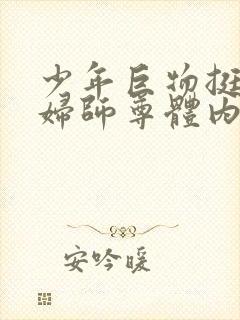 少年巨物挺
婦師尊體內
安吟暖